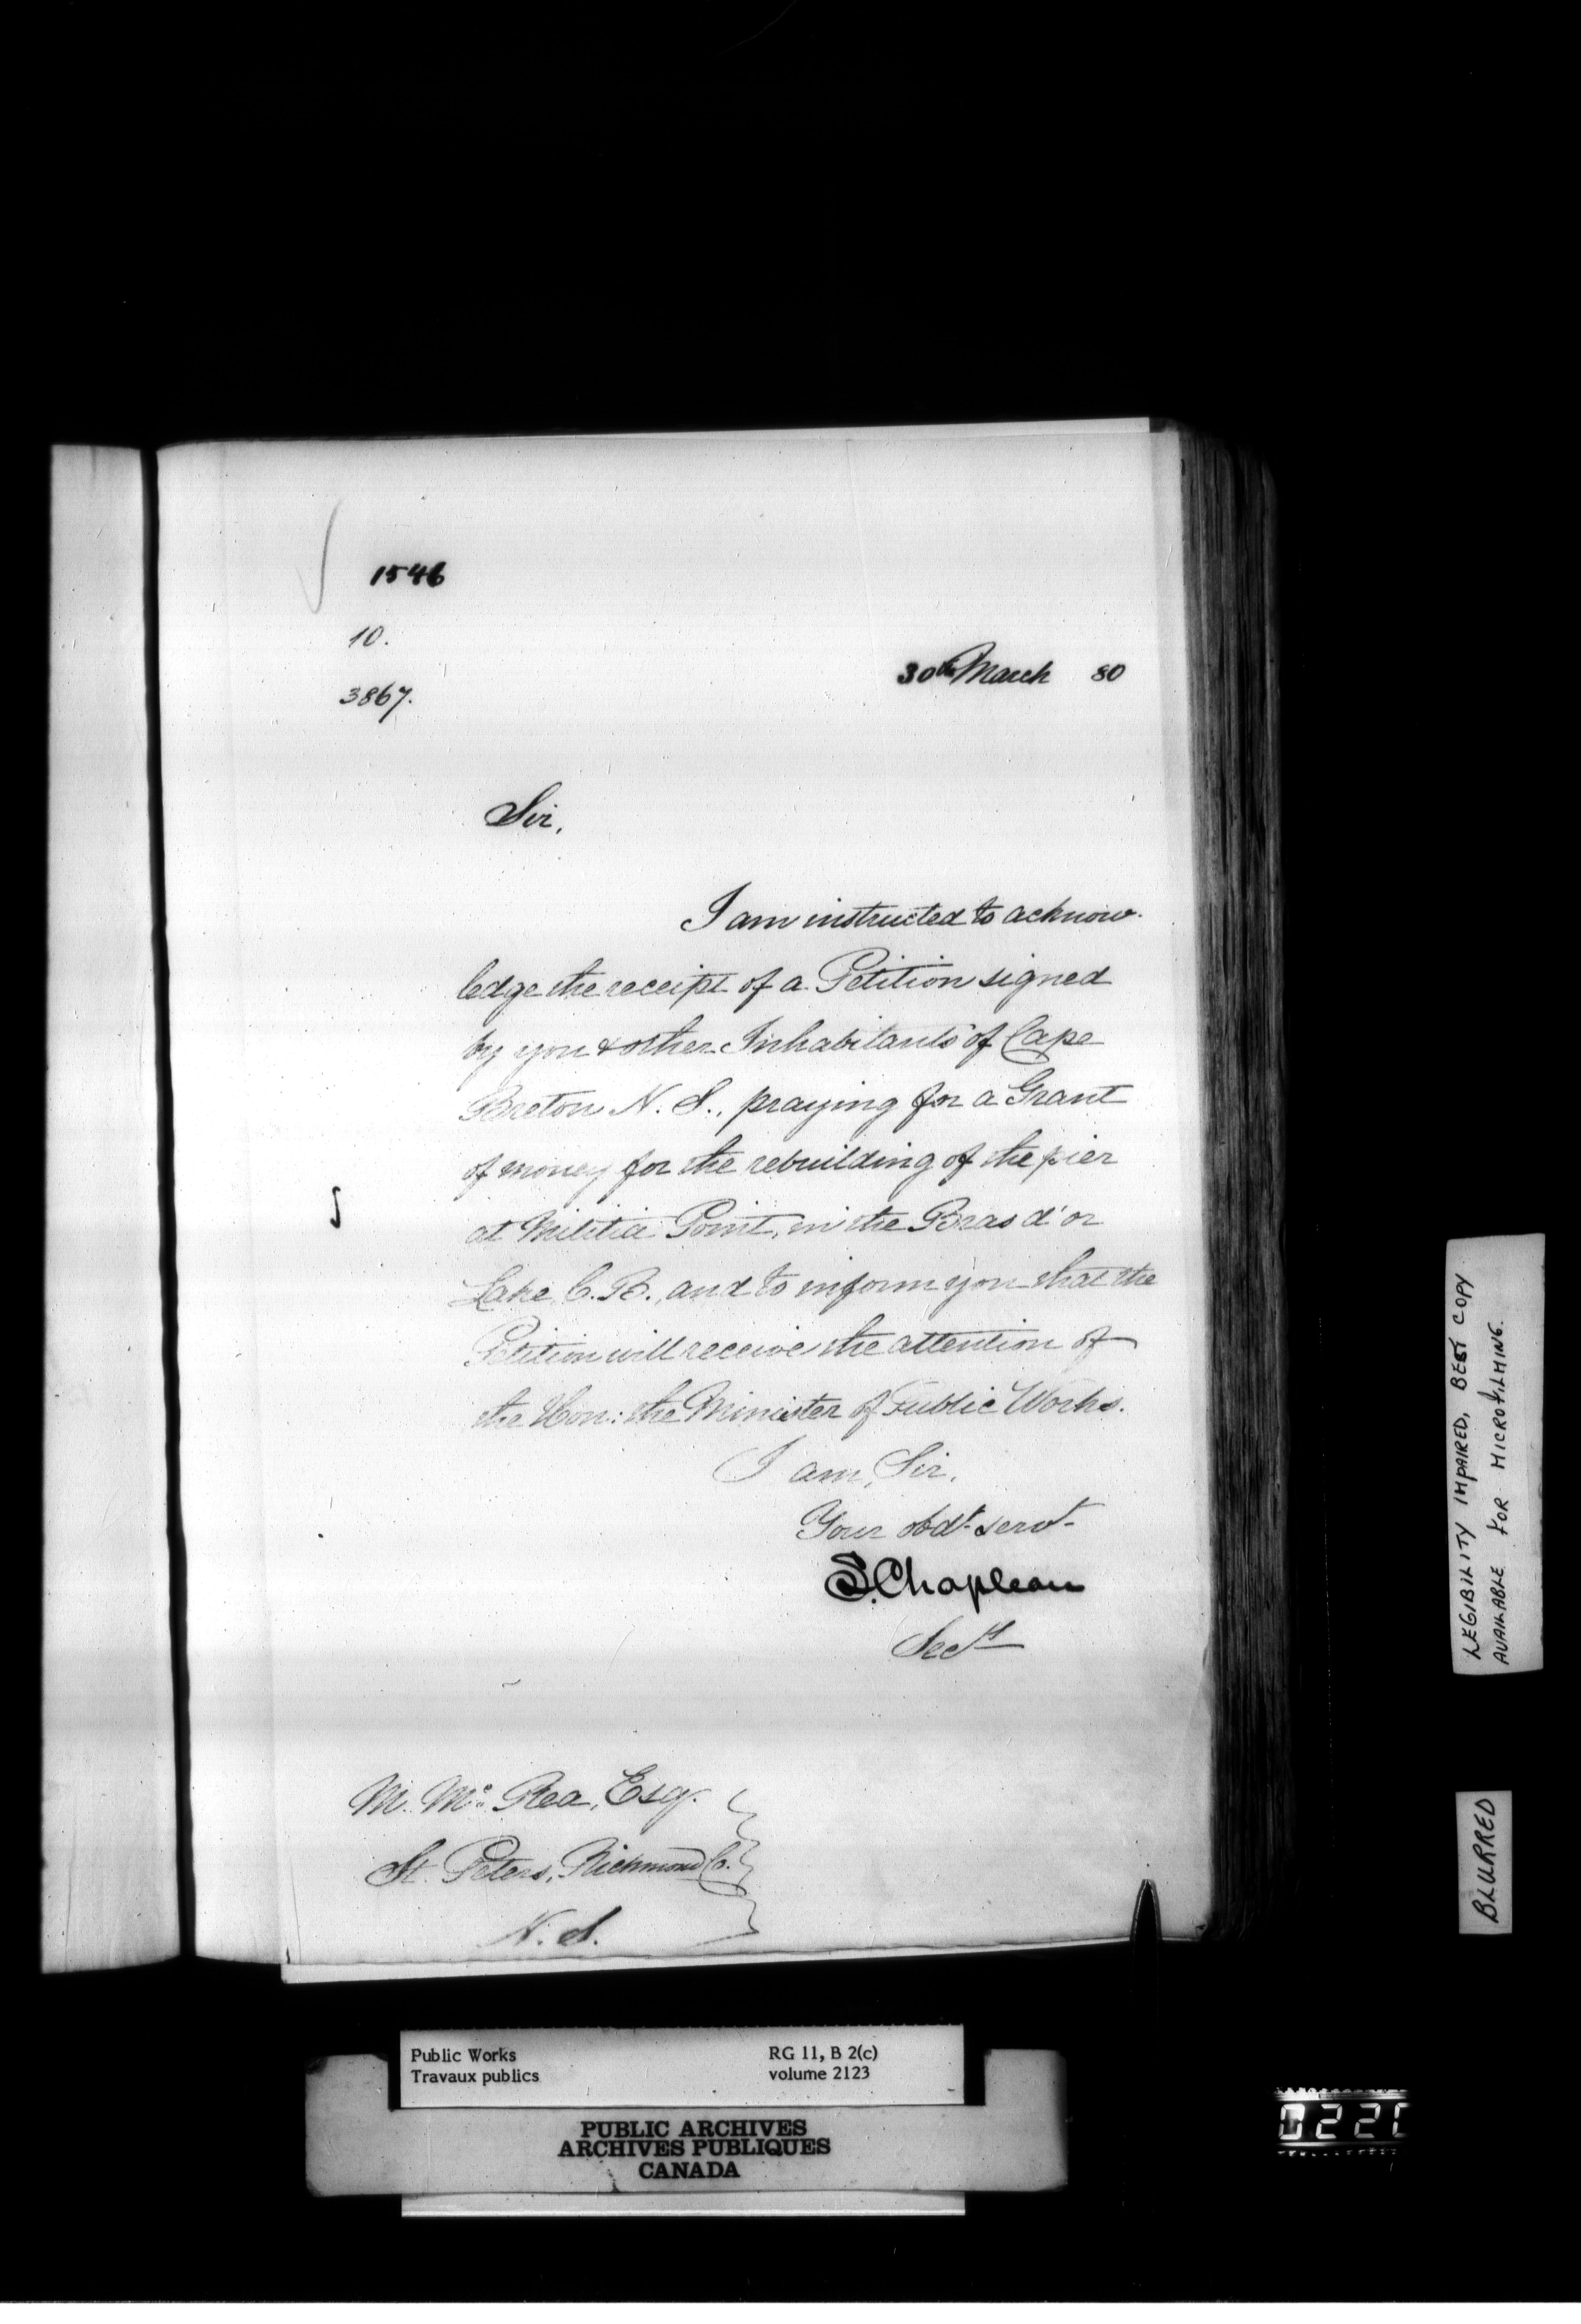 1546
10.
3867.
30th March 80
Sir,
I am instructed to acknow-
ledge the receipt of a Petition signed
by you & other Inhabitants of Cape
Breton N. S., praying for a Grant
of money for the rebuilding of the pier
at Militia Point, in the Bras d'or
Lake, C. B., and to inform you that the
Petition will receive the attention of
the Hon: the Minister of Public Works.
I am, Sir,
Your obdt. servt.
S. Chapleau
Secy
M. Mc. Rea, Esq.
St. Peters, Richmond Co.
N. S.
LEGIBILITY IMPAIRED, BEST COPY
AVAILABLE FOR MICROFILMING.
BLURRED
Public Works RG 11, B 2(c)
Travaux publics volume 2123
PUBLIC ARCHIVES
ARCHIVES PUBLIQUES
CANADA